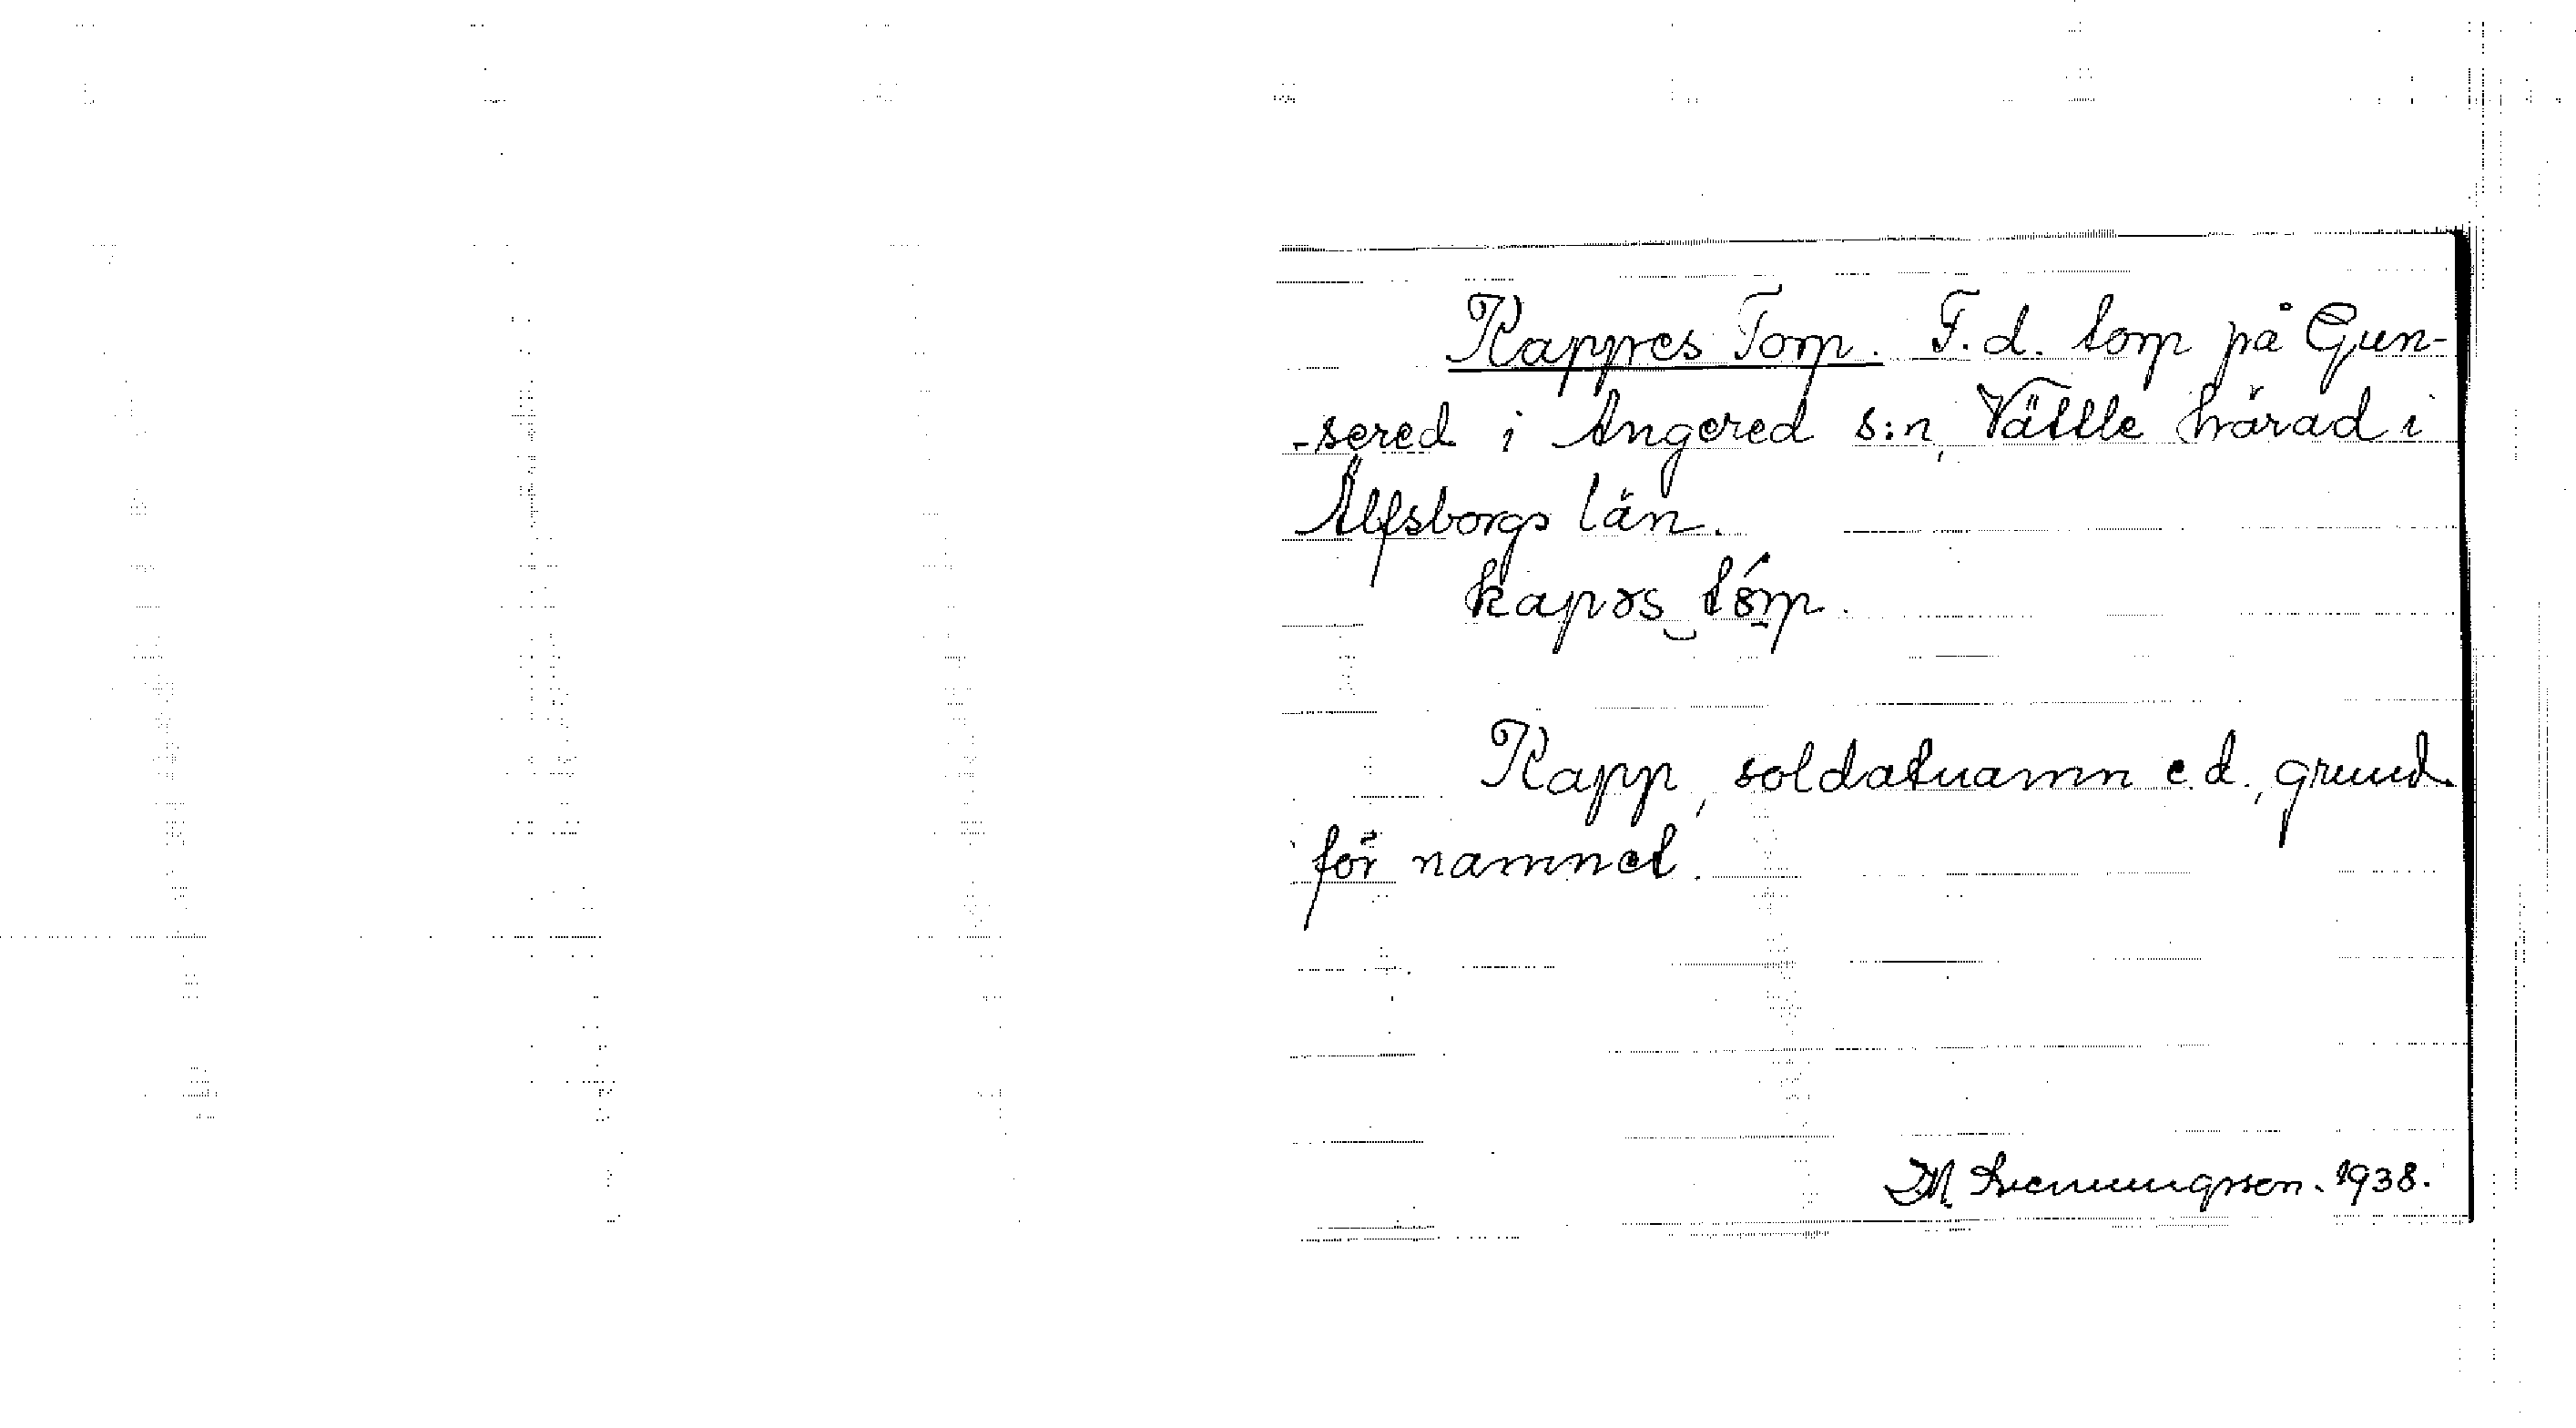 Rappres Torp. F.d. torp på Gun-
-sered i Angered s:n, Vättle härad i
Älfsborgs län.
Rapp, soldatnamn e.d., grund
för namnet.
Svenningsson. 1938.